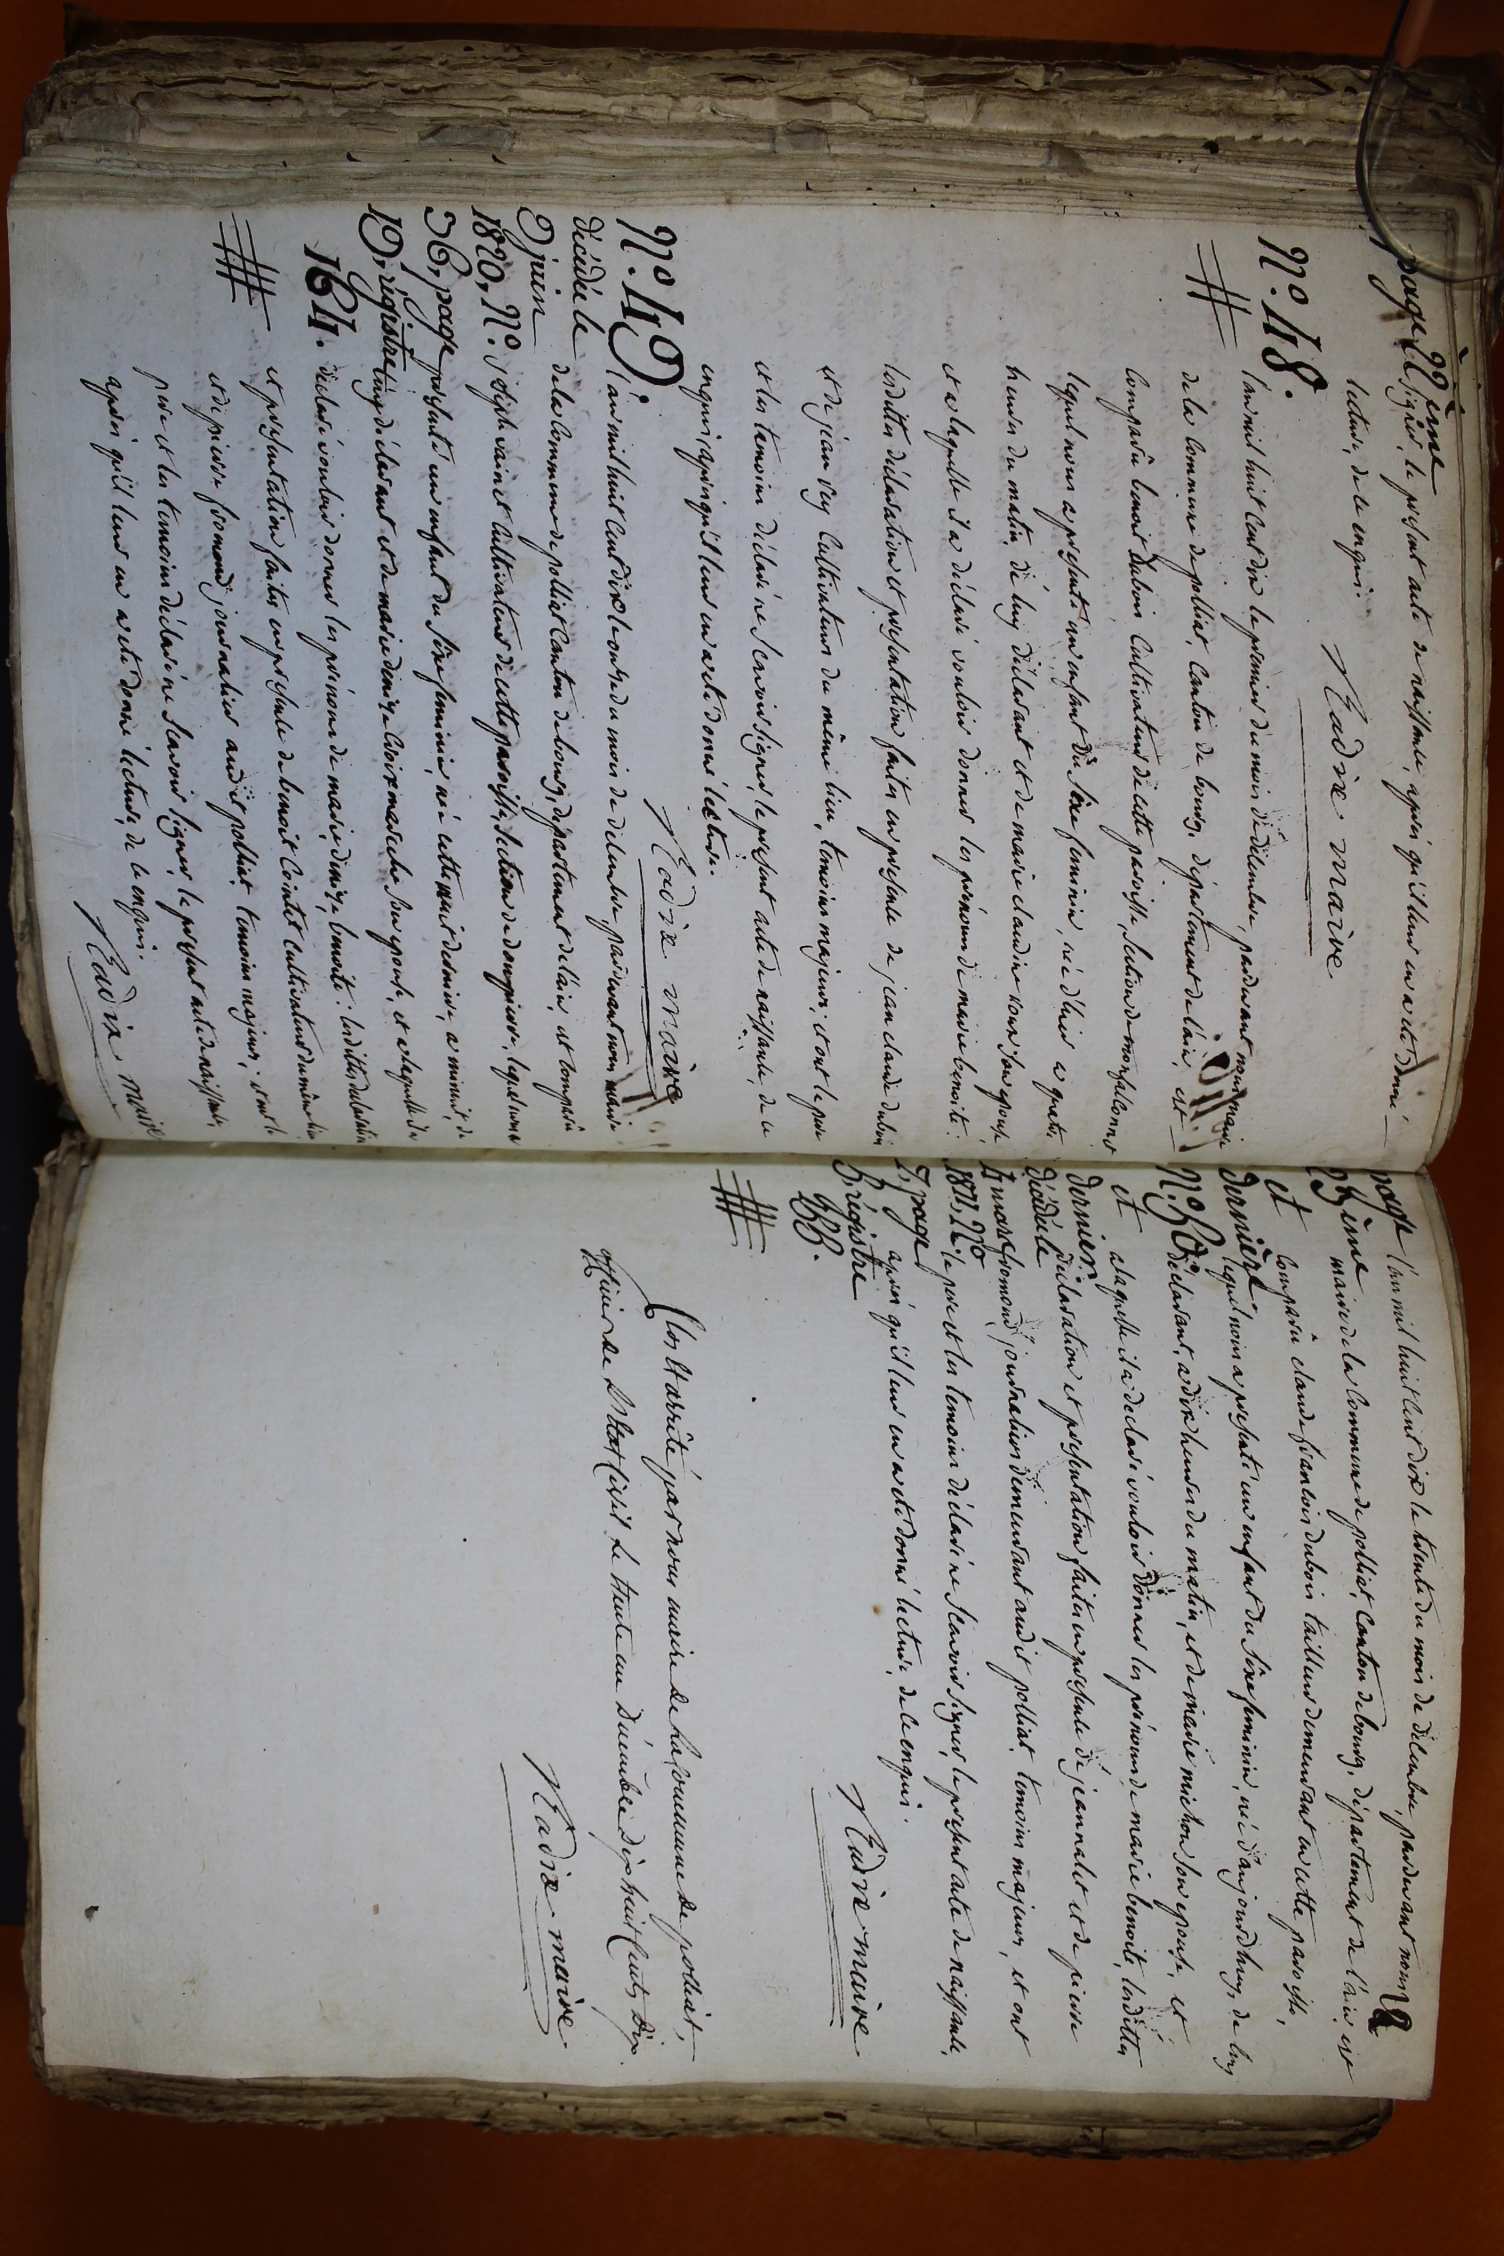 page 22ème
signé, le present acte de naissance, après qu'il leur en a été donné
lecture, de ce enquis.
Eadix maire
N.º 48.
l'an mil huit cent dix le premier du mois de décembre, pardevant nous maire
de la commune de polliat, canton de bourg, département de l'ain, est
comparu benoit dubois cultivateur de cette paroisse, section de monfalconnet
lequel nous a presenté un enfant du sexe feminin, née d'hier a quatre
heures du matin, de luy déclarant et de marie claudine roux son epouse
et a laquelle il a déclaré vouloir donner les prénoms de marie benoite.
lesdittes déclaration et presentation faites en presence de jean claude dubois
et de jean rey cultivateurs du même lieu, temoins majeurs, et ont le pere
et les temoins déclaré ne scavoir signer, le present acte de naissance, de ce
enquis, après qu'il leur en a été donné lecture.
Eadix maire
N.º 49.
décédée le
9 juin
1820, N.º
36, page
19, régistre
164.
l'an mil huit cent dix le onze du mois de décembre, pardevant nous maire
de la commune de polliat canton de bourg, département de l'ain, est comparu
joseph cultivateur de cette paroisse, section de dompierre, lequel nous a
presenté un enfant du sexe feminin, né cette nuit derniere, a minuit, de
luy déclarant et de marie denize son epouse, et a laquelle il a
déclaré vouloir donner les prénoms de marie denize benoite. lesdittes déclaration
et presentation faites en presence de benoit cointet cultivateur du même lieu
et de pierre fromond journalier audit polliat temoins majeurs, et ont le
pere et les temoins déclaré ne scavoir signer, le present acte de naissance,
après qu'il leur en a été donné lecture, de ce enquis.
Eadix maire
page
23ème
et
dernière
N.º 50.
et
dernier.
décédée le
4 mars
1811, N.º
7, page
5, régistre
155.
l'an mil huit cent dix le trente du mois de décembre, pardevant nous
maire de la commune de polliat, canton de bourg, département de l'ain, est
comparu claude françois dubois tailleur demeurant en cette paroisse,
lequel nous a presenté un enfant du sexe feminin, né d'aujourdhuy, de luy
déclarant, a dix heures du matin, et de marie michon son epouse, et
a laquelle il a déclaré vouloir donner les prénoms de marie benoite, lesdittes
déclaration et presentation faites en presence de jeannalet et de pierre
fromond journaliers demeurant audit polliat temoins majeurs, et ont
le pere et les temoins déclaré ne scavoir signer, le present acte de naissance,
après qu'il leur en a été donné lecture, de ce enquis.
Eadix maire.
Clos et arrêté par nous maire de la commune de polliat,
officier de l'état civil le trente un décembre dix huit cents dix.
Eadix maire.